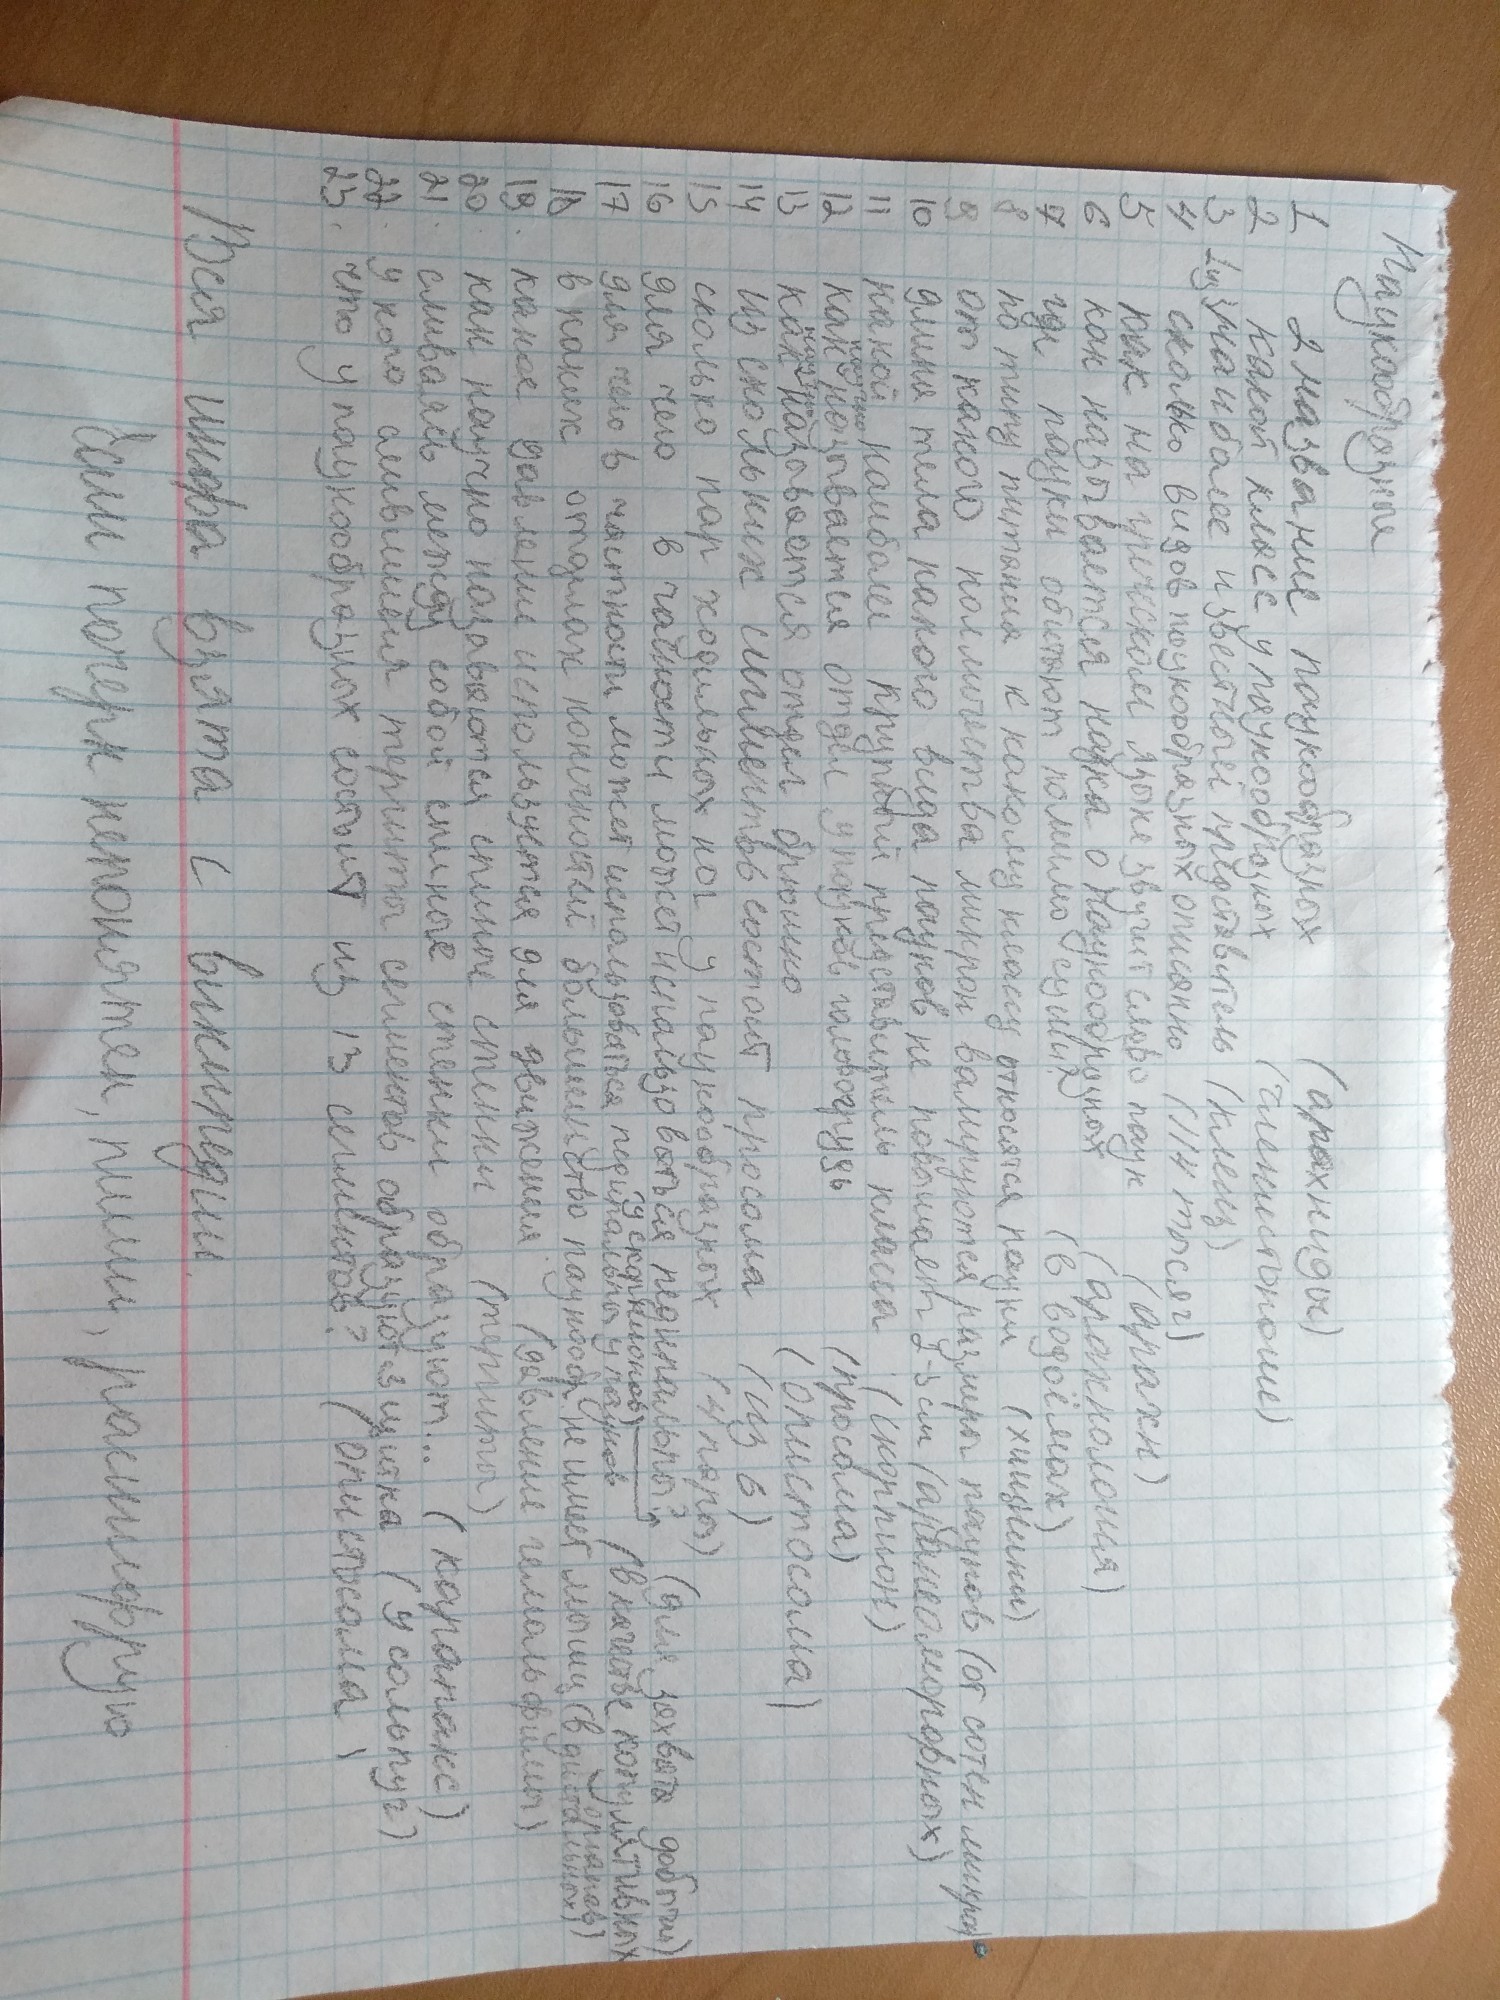 Паукообразные
1 2 название паукообразных (арахниды)
2 какой класс у паукообразных (членистоногие)
3 1 из наиболее известный представитель (клещ)
4 сколько видов паукообразных описанно (114 тысяч)
5 как на греческом языке звучит слово паук (арахн)
6 как называется наука о паукообразных (арахнология)
7 где пауки обитают помимо суши? (в водоёмах)
8 по типу питания к какому классу относятся пауки (хищники)
9 от какого колличества микрон варируются размеры пауков (от сотен микрон)
10 длина тела какого вида пауков не повышает 2-3 см (аранеоморфных)
11 какой наиболее крупный представитель класса (скорпион)
12 как научно называется отдел у пауков головогрудь (просома)
13 как научно называется отдел брюшко (опистосома)
14 из скольких сигментов состоит просома (из 6)
15 сколько пар ходильных ног у паукообразных (4 пары)
16 для чего в часности может использоваться педипальпы? (для захвата добычи)
(у скорпионов)
17 для чего в частности может использоватся педипальпы у пауков (в качестве копулятивных органов)
18 в каких отделах конечностей большинство паукообр. не имеет мышц (в дистальных)
19. какое давление используется для движения (давление гемолимфы)
20. как научно называются спинное стенки (тергиты)
21. сливаясь между собой спинные стенки образуют... (карапакс)
22. у кого слившиеся тергиты сегментов образуют 3 щитка (у сольпуг)
23. что у паукообразных состоит из 13 сегментов? (опистосома)
Вся инфа взята с википедии.
Если почерк непонятен, пиши, расшифрую